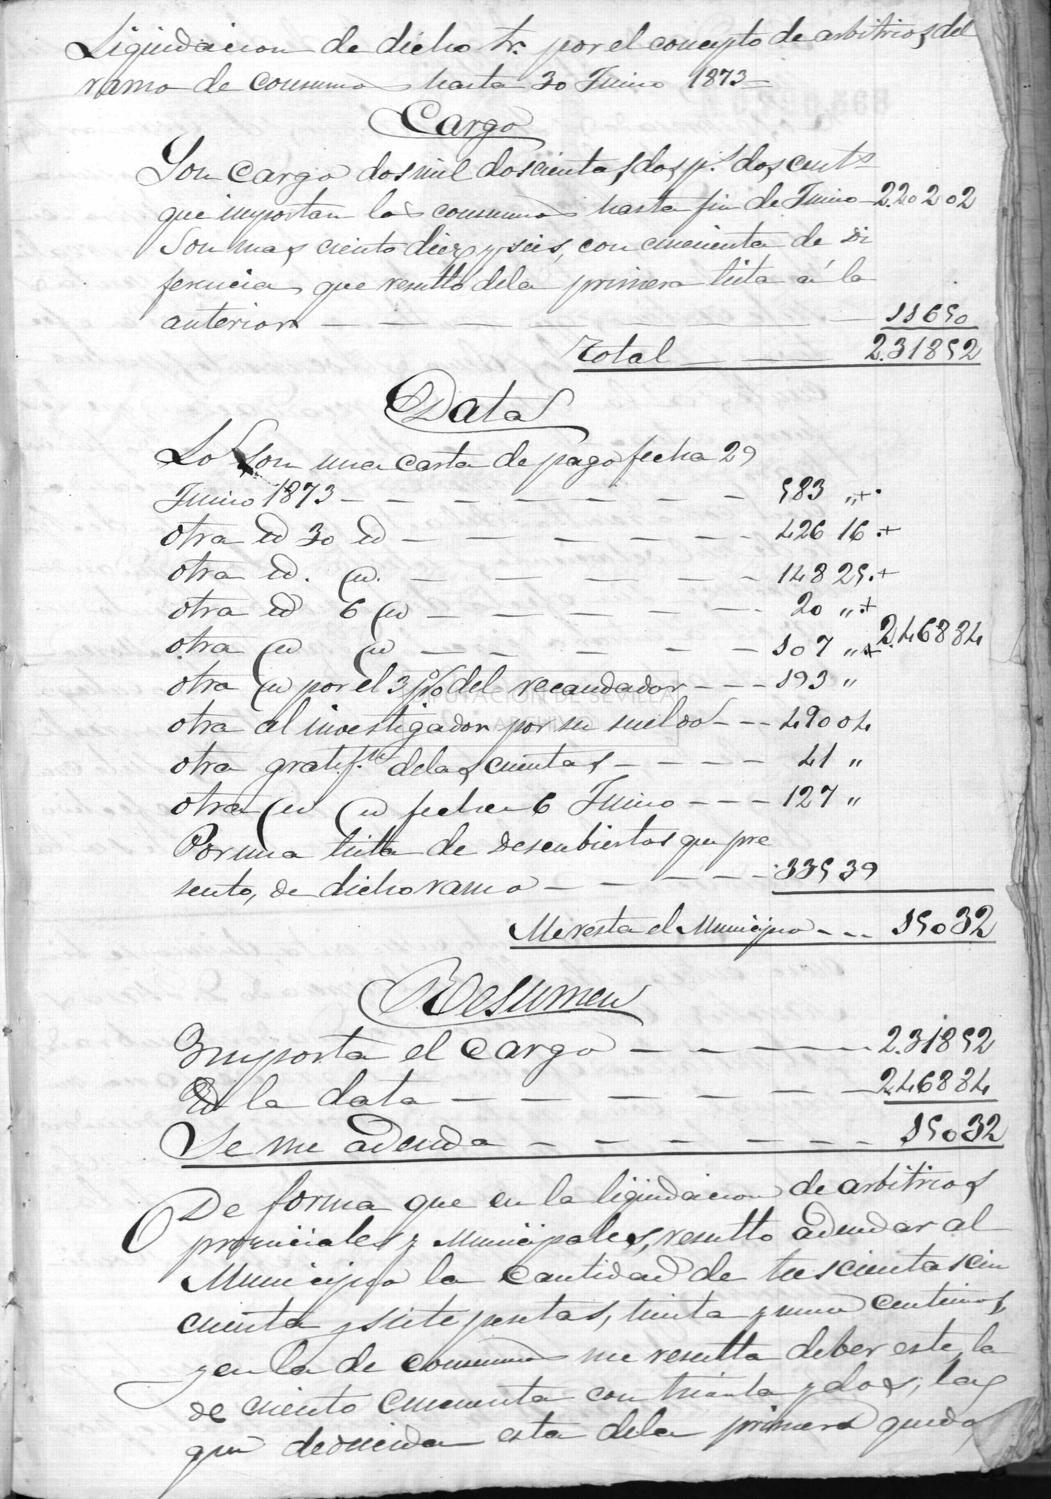 Liquidacion de dicho tr. por el concepto de arbitrios del
ramo de consumos hasta 30 Junio 1873=
Cargo
Son cargo dos mil doscientas dos p.s dos cents
que importan los consumos hasta fin de Junio 220202
Son mas ciento diez y seis, con cincuenta de di
ferencia, que resultó de la primera lista á la
anterior 11650
Total 231852
Data
Lo son una carta de pago fecha 29
Junio 1873 583 "+
otra id 30 id 426 16 +
otra id. id. 148 25 +
otra id 6 id 20 " +
otra id id 107 " + 246884
otra id por el 3 p% del recaudador 193 "
otra al investigador por su sueldo 490 04
otra gratif.on de las cuentas 41 "
otra id id fecha 6 Junio 127 "
Por una lista de descubiertos que pre
sento, de dicho ramo 335 39
Me resta el Municipio 15032
Resumen
Importa el cargo 231852
Id la data 246884
Se me adeuda 15032
De forma que en la liquidacion de arbitrios
provinciales y Municipales, resulto adeudar al
Municipio la cantidad de trescientas cin
cuenta y siete pesetas, treinta y un centimos,
y en la de consumos me resulta deber este, la
de ciento cincuenta con treinta y dos, las
que deducidas esta de la primera queda
DIPUTACIÓN DE SEVILLA
ARCHIVO